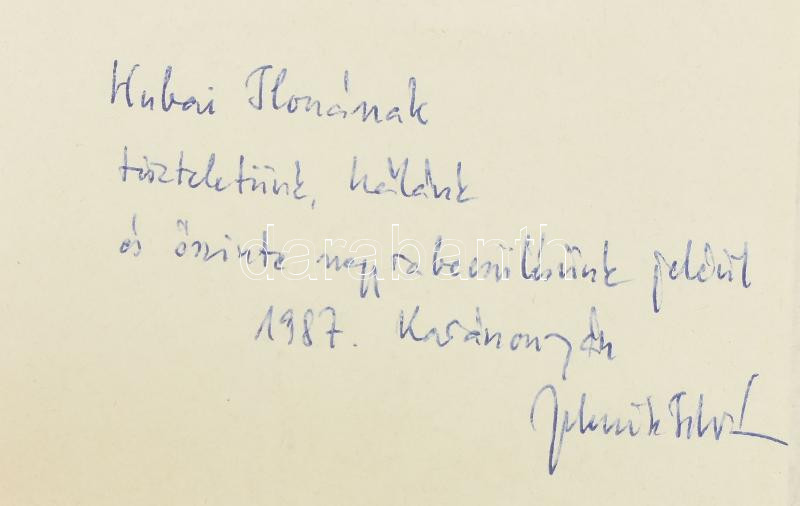 Hubai Ilonának
tiszteletünk, hálánk
és őszinte nagyrabecsülésünk jeléül
1987. Karácsonyán
Jelenik István
darabanth